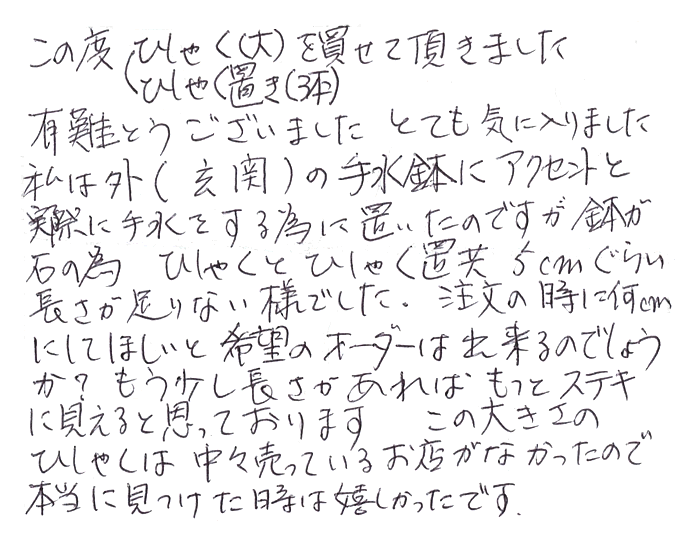 この度 ひしゃく(大)を買せて頂きました
(ひしゃく置き(3本)
有難とうございました とても気に入りました
私は外(玄関)の手水鉢にアクセントと
実際に手水をする為に置いたのですが鉢が
石の為 ひしゃくとひしゃく置共 5cmぐらい
長さが足りない様でした. 注文の時に何cm
にしてほしいと希望のオーダーは出来るのでしょう
か? もう少し長さがあれば もっとステキ
に見えると思っております この大きさの
ひしゃくは中々売っているお店がなかったので
本当に見つけた時は嬉しかったです.